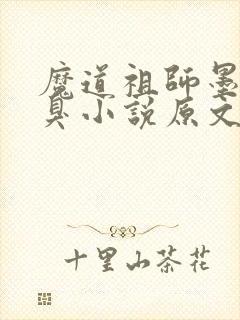 魔道祖師墨
臭小説原文
十里山茶花